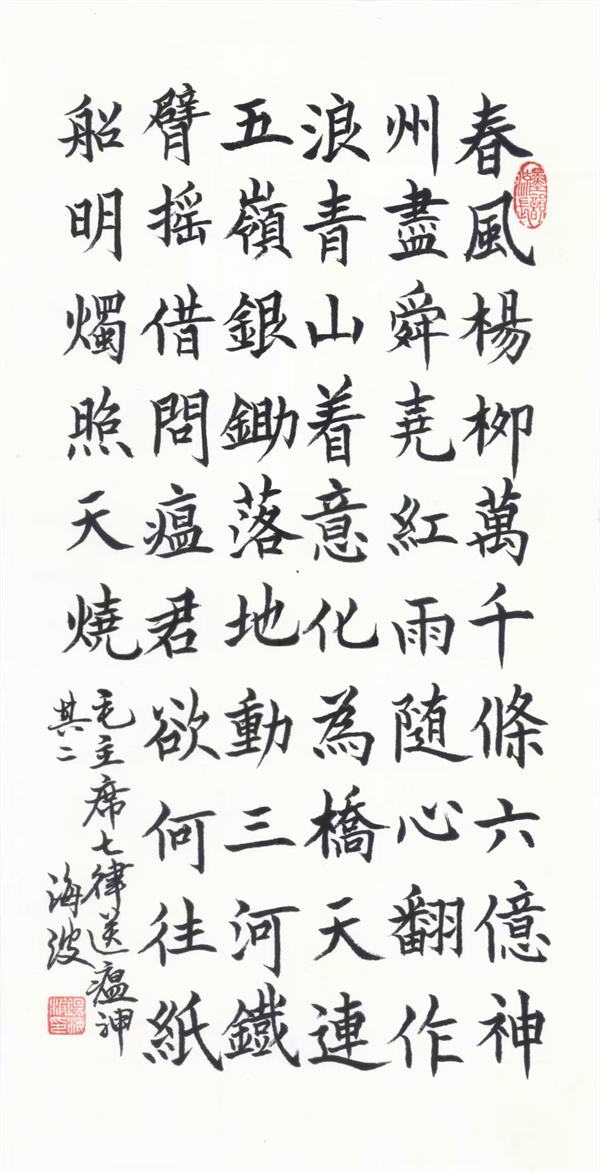 春風楊柳萬千條六億神
州盡舜堯紅雨随心翻作
浪青山着意化為橋天連
五嶺銀鋤落地動三河鐵
臂摇借問瘟君欲何往紙
船明燭照天燒
毛主席七律送瘟神
其二
海波